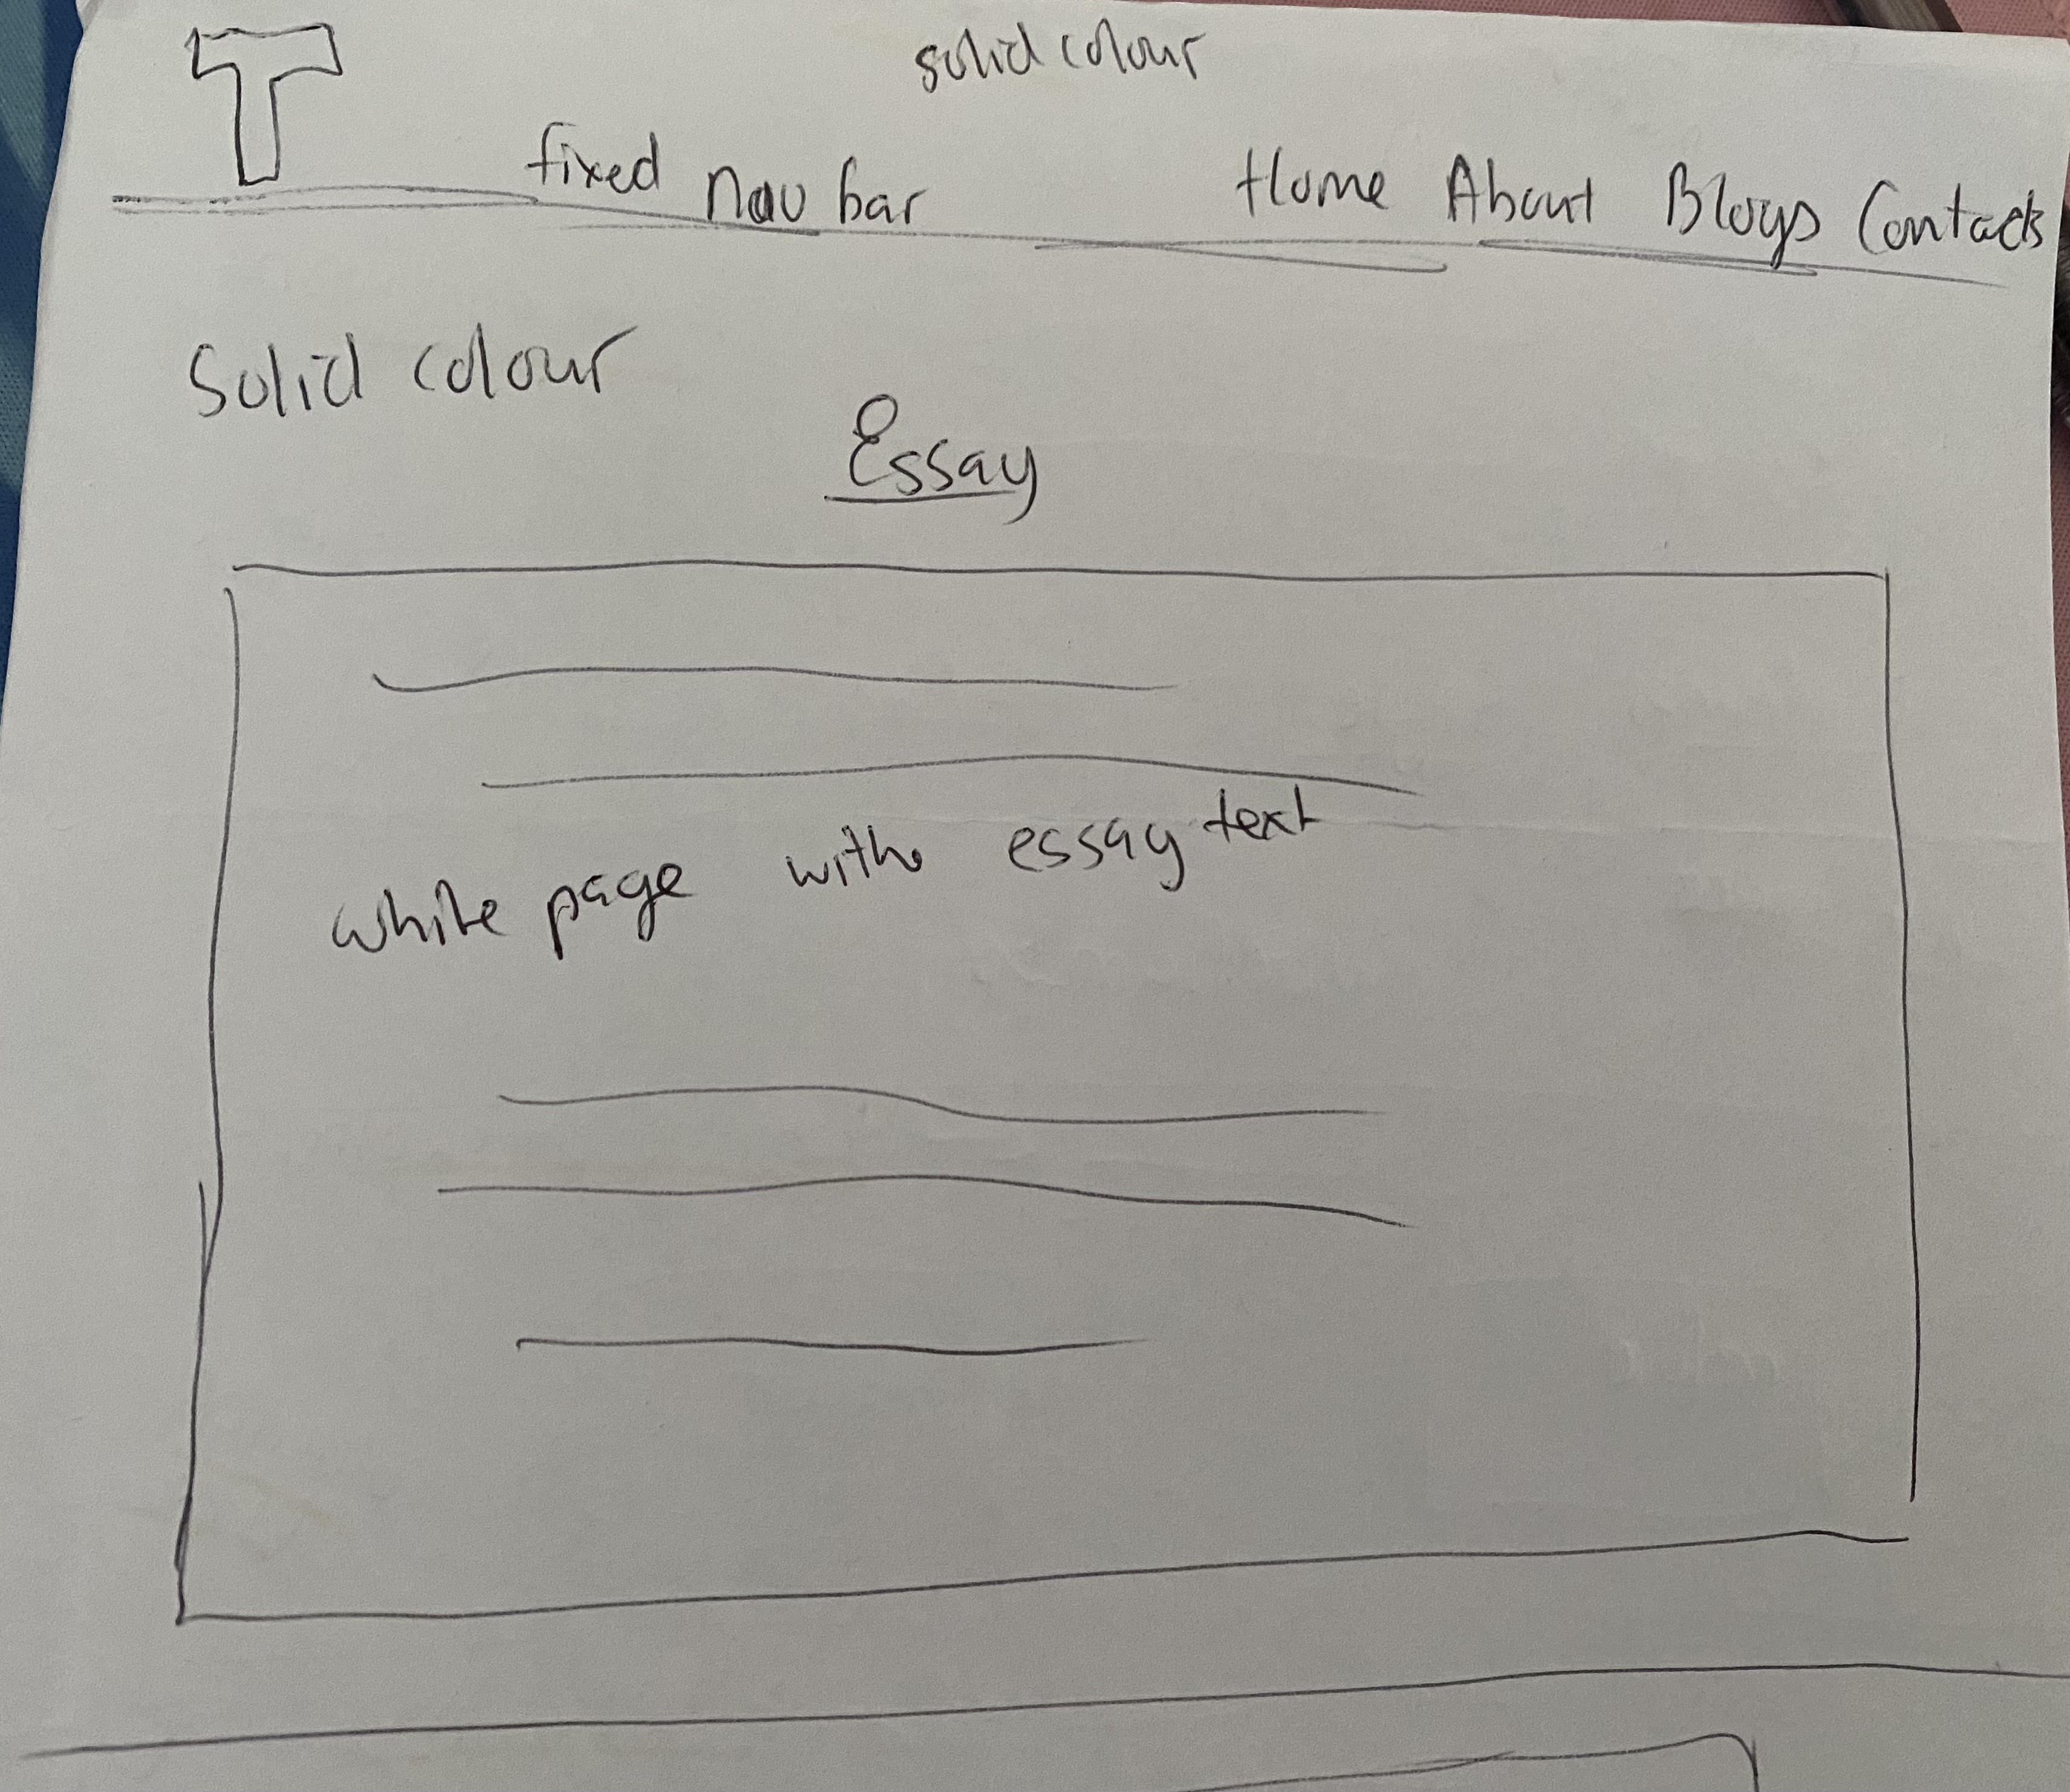 T
solid colour
fixed nav bar
Home About Blogs Contacts
Solid colour
Essay
white page with essay text